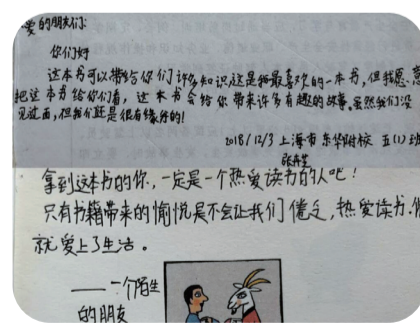 爱的朋友们:
你们好
这本书可以带给你们许多知识,这是我最喜欢的一本书,但我愿意
把这本书给你们看,这本书会给你带来许多有趣的故事。虽然我们没
见过面,但我们还是很有缘分的!
2018/12/3 上海市东华附校 五(1)班
拿到这本书的你,一定是一个热爱读书的人吧!
只有书籍带来的愉悦是不会让我们倦乏,热爱读书,你
就爱上了生活。
——一个陌生
的朋友